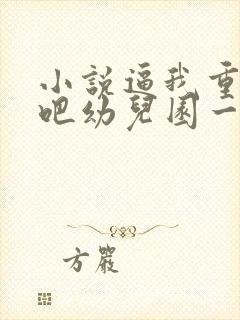 小說逼我重
吧幼兒園一
方嚴